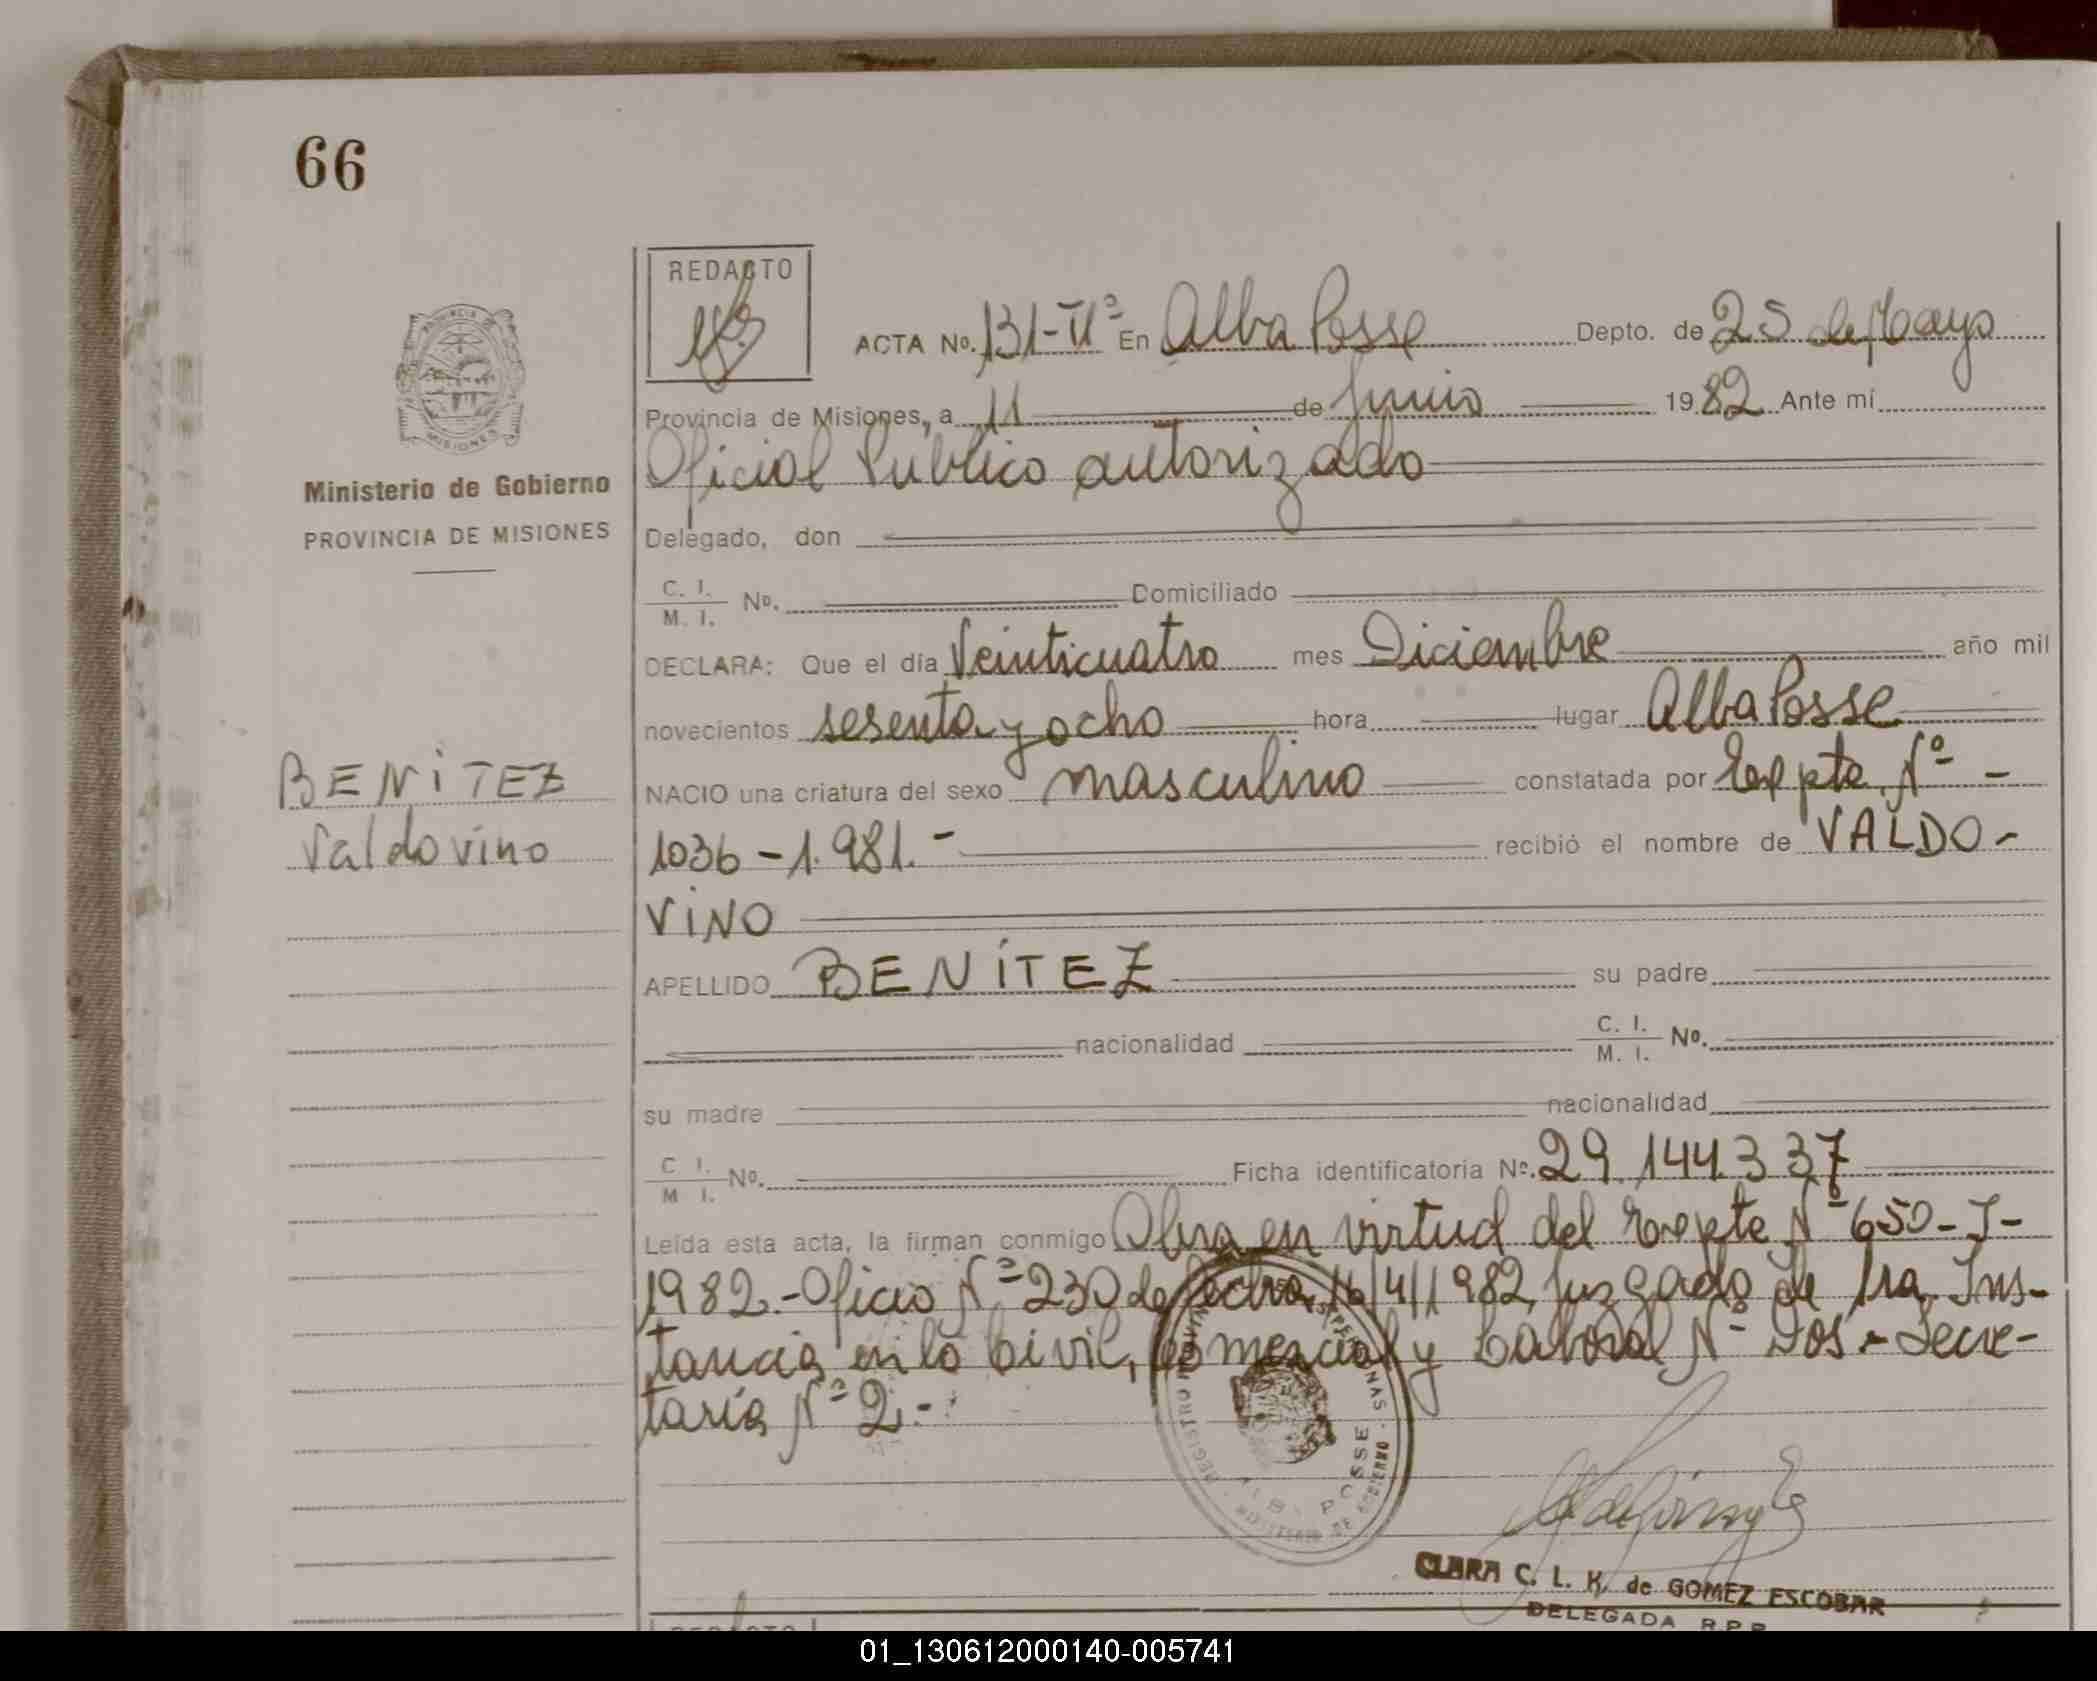 66
REDACTO
ACTA No. 131-IIº En Alba Posse Depto. de 25 de Mayo
Provincia de Misiones, a 11 de Junio 1982 Ante mí
Oficial Publico autorizado
Ministerio de Gobierno
PROVINCIA DE MISIONES
Delegado, don
C. I.
M. I. No. Domiciliado
DECLARA: Que el día Veinticuatro mes Diciembre año mil
novecientos sesenta y ocho hora lugar Alba Posse
BENITEZ
Valdovino
NACIO una criatura del sexo masculino constatada por Expte. Nº -
1036-1.981.- recibió el nombre de VALDO-
VINO
APELLIDO BENÍTEZ su padre
nacionalidad C. I.
M. I. No.
su madre nacionalidad
C I.
M I. No. Ficha identificatoria No. 29.144.337
Leída esta acta, la firman conmigo Obra en virtud del Expte Nº 650-J-
1982.-Oficio Nº 230 de fecha 16/4/1982, Juzgado de 1ra. Ins-
tancia en lo Civil, Comercial y Laboral Nº Dos - Secre-
taría Nº 2.-
POSSE
CLARA C. L. K. de GOMEZ ESCOBAR
DELEGADA R.P.P.
REDACTO
01_130612000140-005741